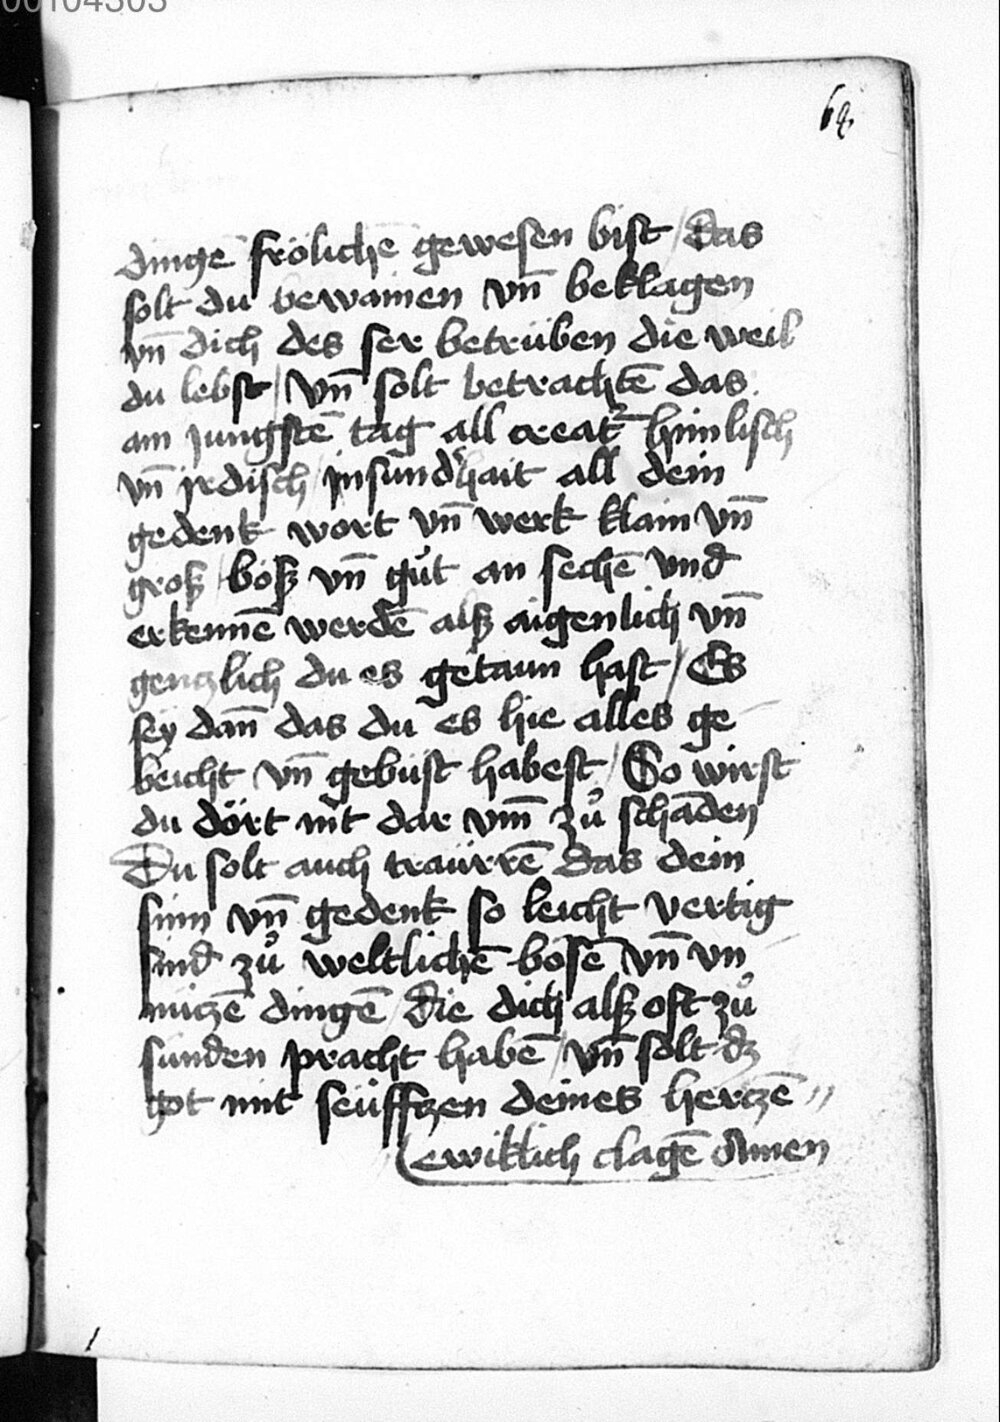 00104303
64
dingē frölichē gewesen bist / Das
solt du bewainen vn̄ beklagen
vn̄ dich des ser betrüben die weil
du lebst / Vn̄ solt betrachtē das
am jungstē tag all creatᷣ himlisch
vn̄ jrdisch / jnsundhait all dein
gedenk wort vn̄ werk klain vn̄
groß / böß vn̄ gůt an sechē vnd
erkennē werdē alß aigenlich vn̄
genczlich du es getaun hast / Es
sey dan̄ das du es hie alles ge
beicht vn̄ gebüst habest / So wirst
du dört nit dar vm̄ zů schāden
Du solt auch traürrē Das dein
sinn vn̄ gedenk so leicht vertig
sind zů weltlichē bösē vn̄ vn
nüczē dingē / Die dich alß oft zů
sünden pracht habē / vn̄ solt dz
got mit seüffczen deines herczē
ewiklich clagē Amen